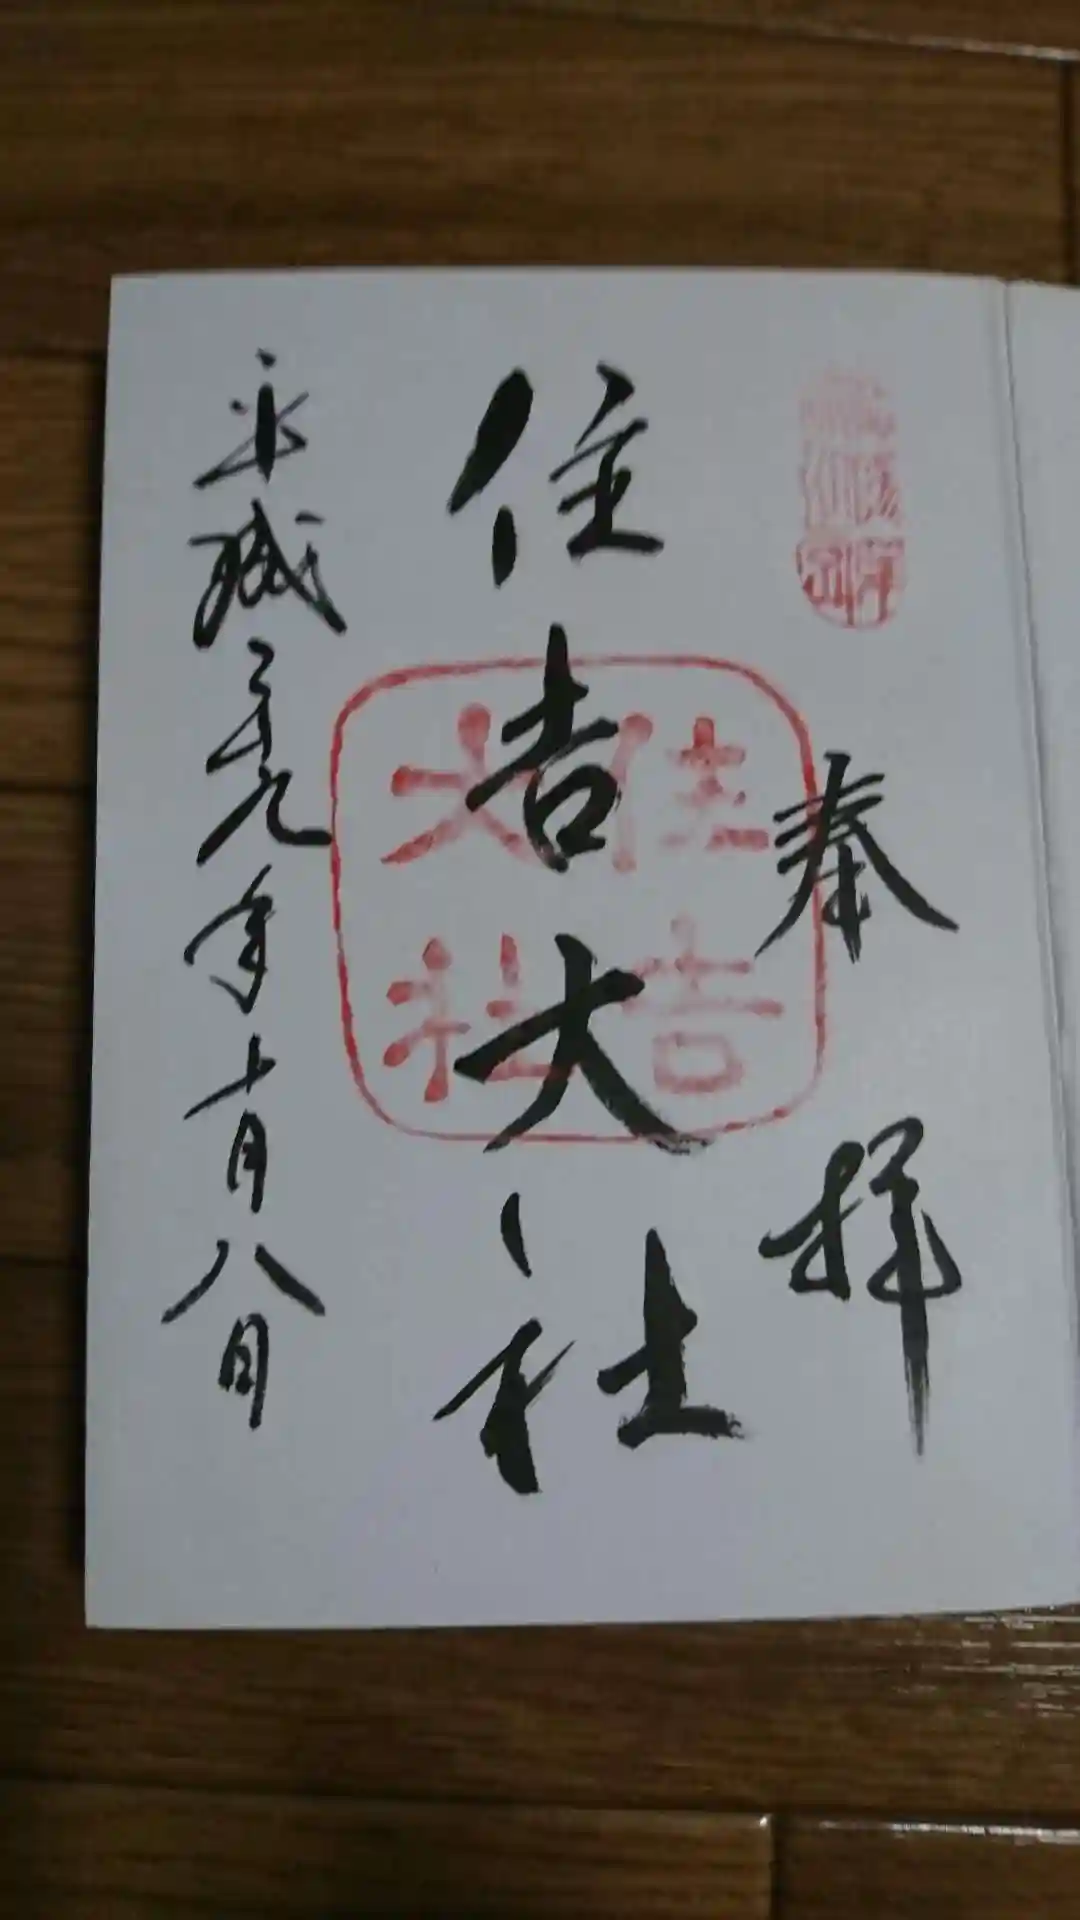 奉拝
住吉大社
住吉
大社
平成二十九年十月八日